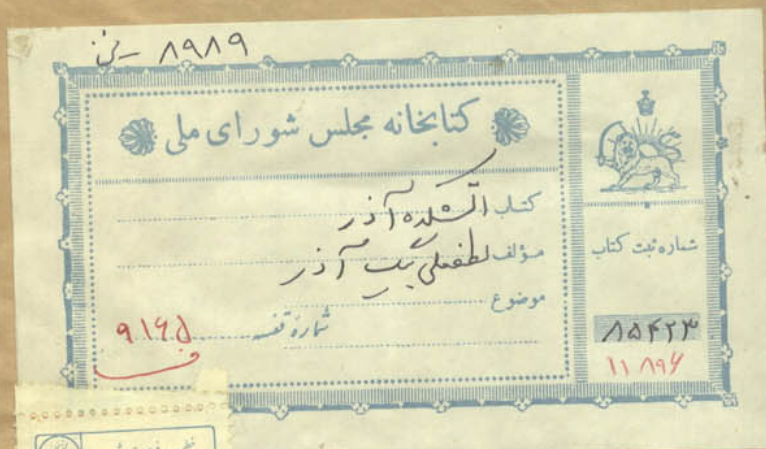 ۸۹۸۹
کتابخانه مجلس شورای ملی
کتاب آتشکده آذر
مؤلف لطفعلی بیگ آذر
موضوع
شماره قفسه ۹۱۶۵
شماره ثبت کتاب
۸۵۴۲۳
۱۱۸۹۶